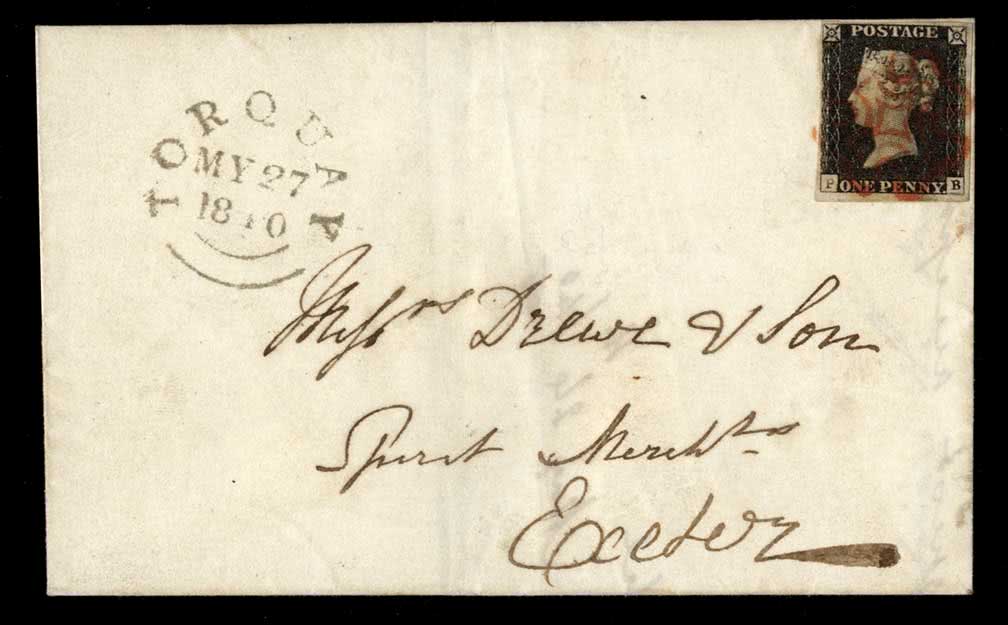 POSTAGE
P ONE PENNY. B
TORQUAY
MY 27
1840
Messrs Drewe & Son
Spirit Merchts
Exeter